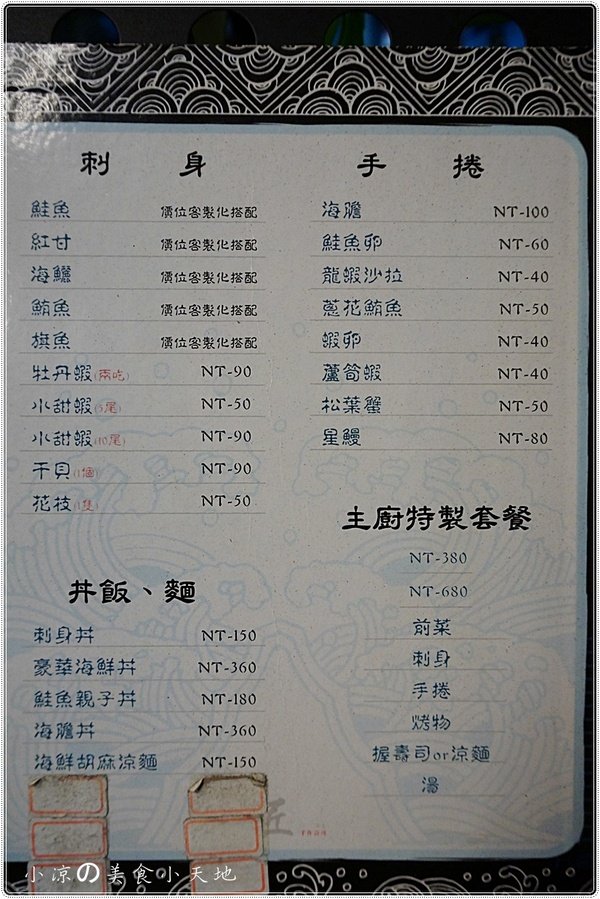 刺身
鮭魚 價位客製化搭配
紅甘 價位客製化搭配
海鱺 價位客製化搭配
鮪魚 價位客製化搭配
旗魚 價位客製化搭配
牡丹蝦(兩吃) NT-90
小甜蝦(5尾) NT-50
小甜蝦(10尾) NT-90
干貝(1個) NT-90
花枝(1隻) NT-50
丼飯、麵
刺身丼 NT-150
豪華海鮮丼 NT-360
鮭魚親子丼 NT-180
海膽丼 NT-360
海鮮胡麻涼麵 NT-150
手捲
海膽 NT-100
鮭魚卵 NT-60
龍蝦沙拉 NT-40
蔥花鮪魚 NT-50
蝦卵 NT-40
蘆筍蝦 NT-40
松葉蟹 NT-50
星鰻 NT-80
主廚特製套餐
NT-380
NT-680
前菜
刺身
手捲
烤物
握壽司or涼麵
湯
匠
小涼の美食小天地